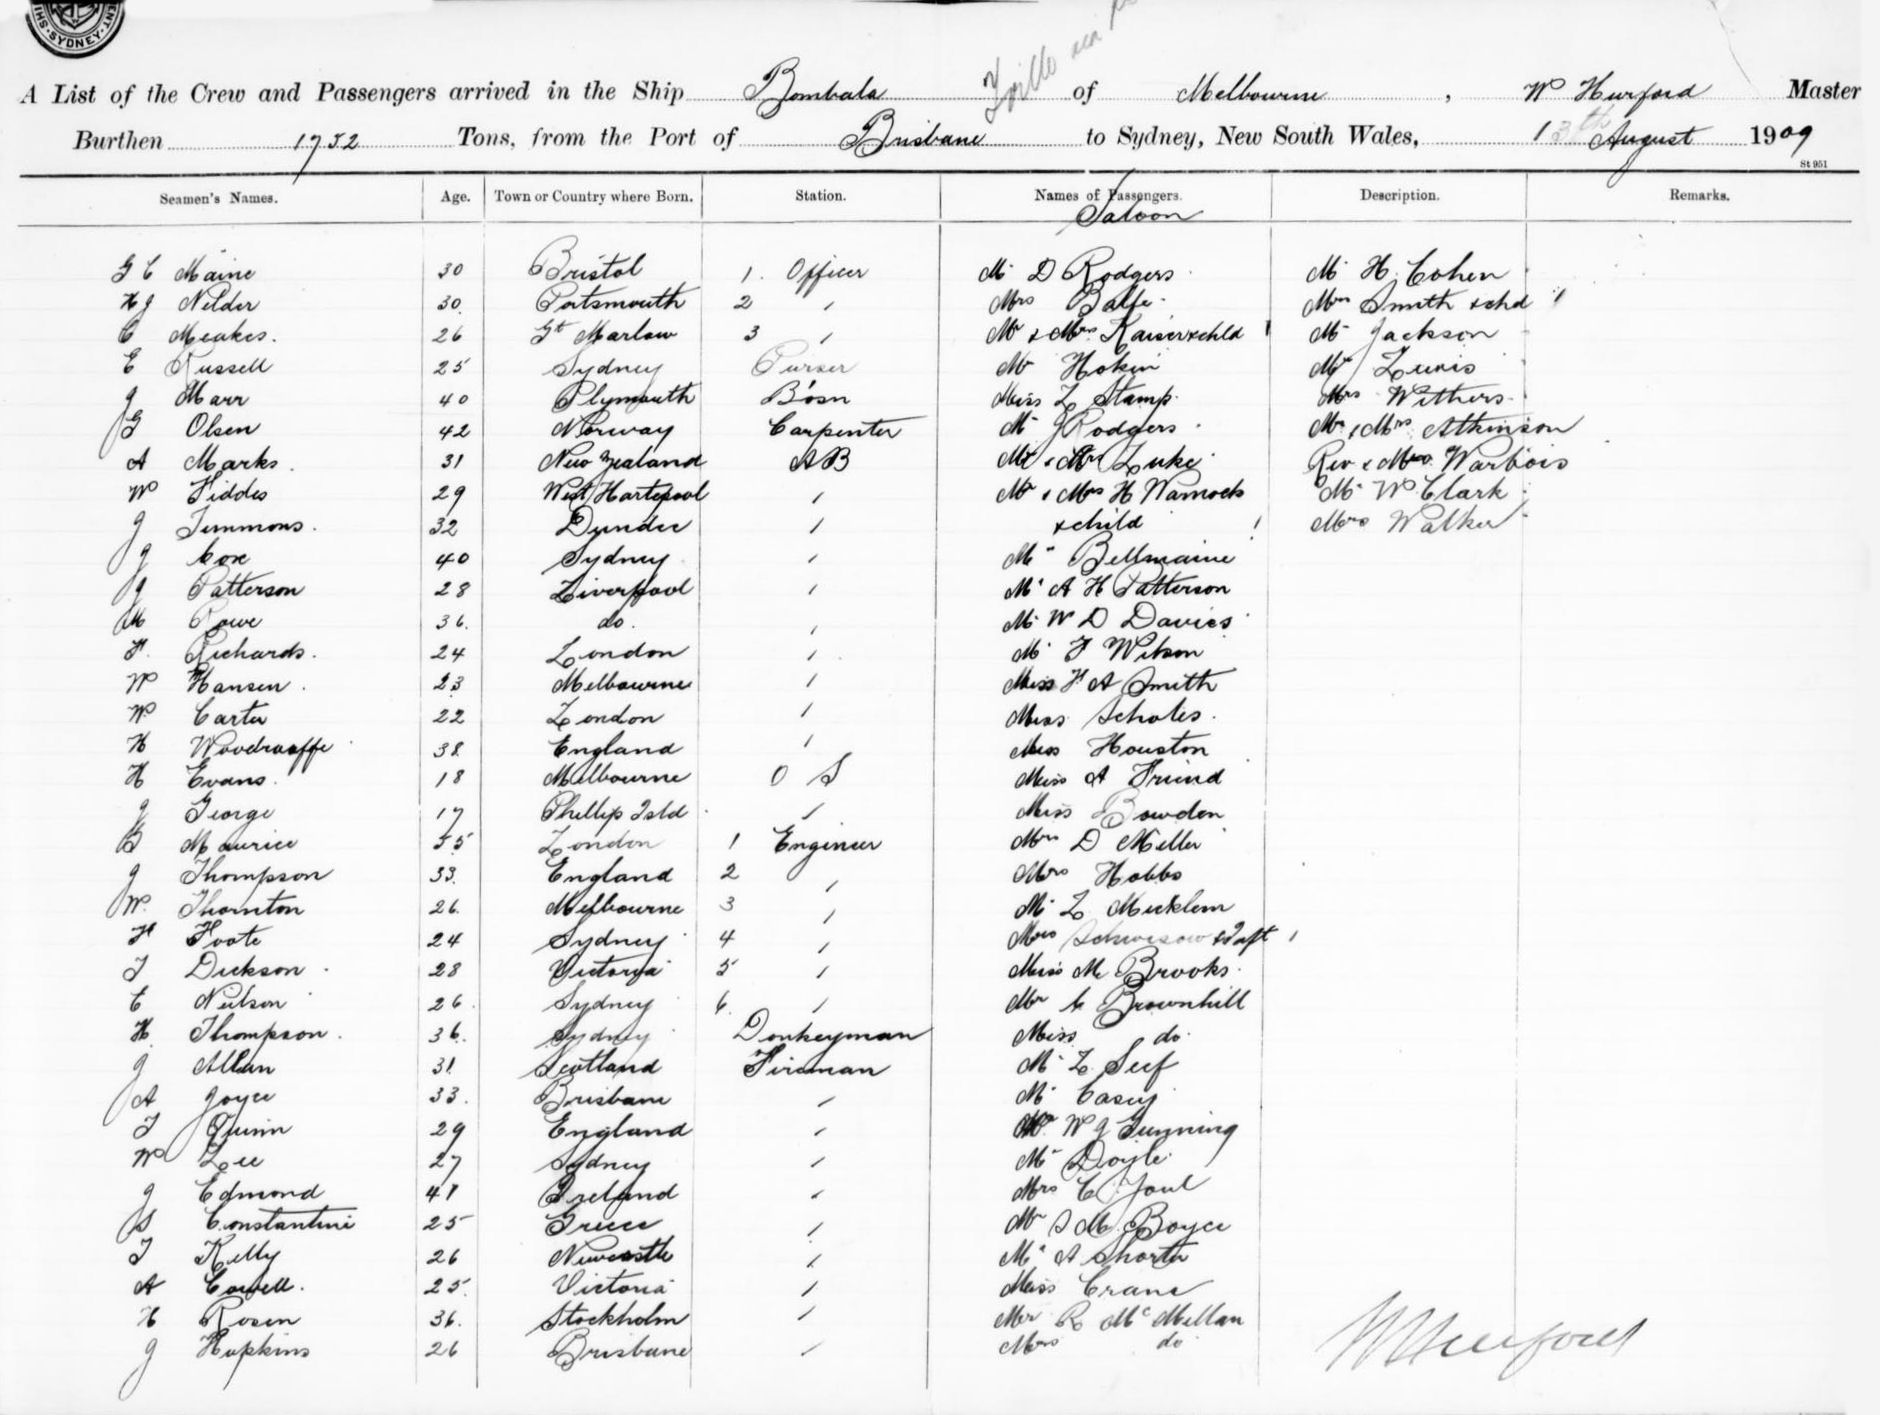 SYDNEY
A List of the Crew and Passengers arrived in the Ship Bombala of Melbourne, W Hurford Master
Burthen 1752 Tons, from the Port of Brisbane to Sydney, New South Wales, 13th August 1909
St 951
Seamen's Names. Age. Town or Country where Born. Station. Names of Passengers. Description. Remarks.
Saloon
G C Maine 30 Bristol 1. Officer Mr D Rodgers Mr H Cohen
H J Nelder 30. Portsmouth 2 " Mrs Balfe Mrs Smith & chd 1
C Meakes. 26 Gt Marlow 3 " Mr & Mrs Kaiser & chld 1 Mr Jackson
E Russell 25 Sydney Purser Mr Hokin Mr Lewis
J Marr 40 Plymouth Bosn Miss L Stamp Mrs Withers
G Olsen 42 Norway Carpenter Mr J Rodgers Mr & Mrs Atkinson
A Marks. 31 New Zealand AB Mr & Mrs Luke Rev & Mrs
W Fiddes 29 West Hartepool " Mr & Mrs H Warnock Mr W Clark
J Timmons. 32 Dundee " & child 1 Mrs Walker
J Cox 40 Sydney " Mr Bellmaine
J Patterson 28 Liverpool " Mr A H Patterson
M Rowe 36. do. " Mr W D Davies
F. Richards. 24 London " Mr F Wilson
W Hansen. 23 Melbourne " Miss F A Smith
W Carter 22 London " Miss Scholes.
H Woodrooffe 38. England " Miss Houston
H Evans. 18 Melbourne O S Miss A Friend
J George 17 Phillip Isld " Miss Bowden
G Maurice 55 London 1 Engineer Mrs D Miller
J Thompson 33. England 2 " Mrs Hobbs
W. Thornton 26. Melbourne 3 " Mr L Micklem
F Foote 24 Sydney 4 " Mrs & Inft 1
T Dickson 28 Victoria 5 " Miss M Brooks
C Neilson 26. Sydney 6. " Mr C Brownhill
H. Thompson. 36. Sydney Donkeyman Miss do.
J Allan 31. Scotland Fireman Mr L Seef
A Joyce 33. Brisbane " Mr Casey
T Quinn 29 England " Mr W J Gunning
W Lee 27 Sydney " Mr Doyle
J Edmond 41 Ireland " Mrs C
S Constantine 25 Greece " Mr S M Boyce
T Kelly 26 Newcastle " Mr A Shorter
A Cowell. 25. Victoria " Miss Crane
H Rosen 36. Stockholm " Mr R McMillan
J Hopkins 26 Brisbane " Mrs do
W Hurford